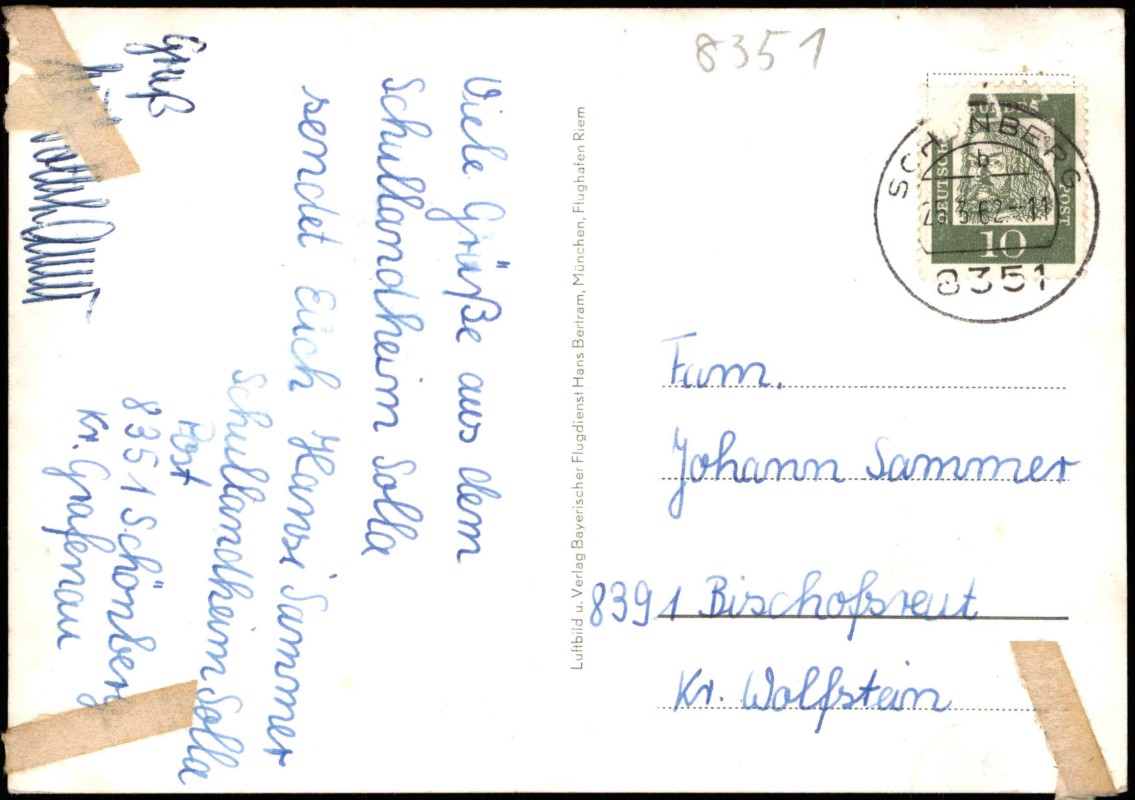 Viele Grüße aus dem
Schullandheim Solla
sendet Euch Hansi Sammer
Schullandheim Solla
Post
8351 Schönberg
Kr. Grafenau
Gruß
Luftbild u. Verlag Bayerischer Flugdienst Hans Bertram, München, Flughafen Riem
8351
DEUTSCHE
BUNDES
POST
10
SCHÖNBERG
b
3.62-11
8351
Fam.
Johann Sammer
8391 Bischofsreut
Kr. Wolfstein